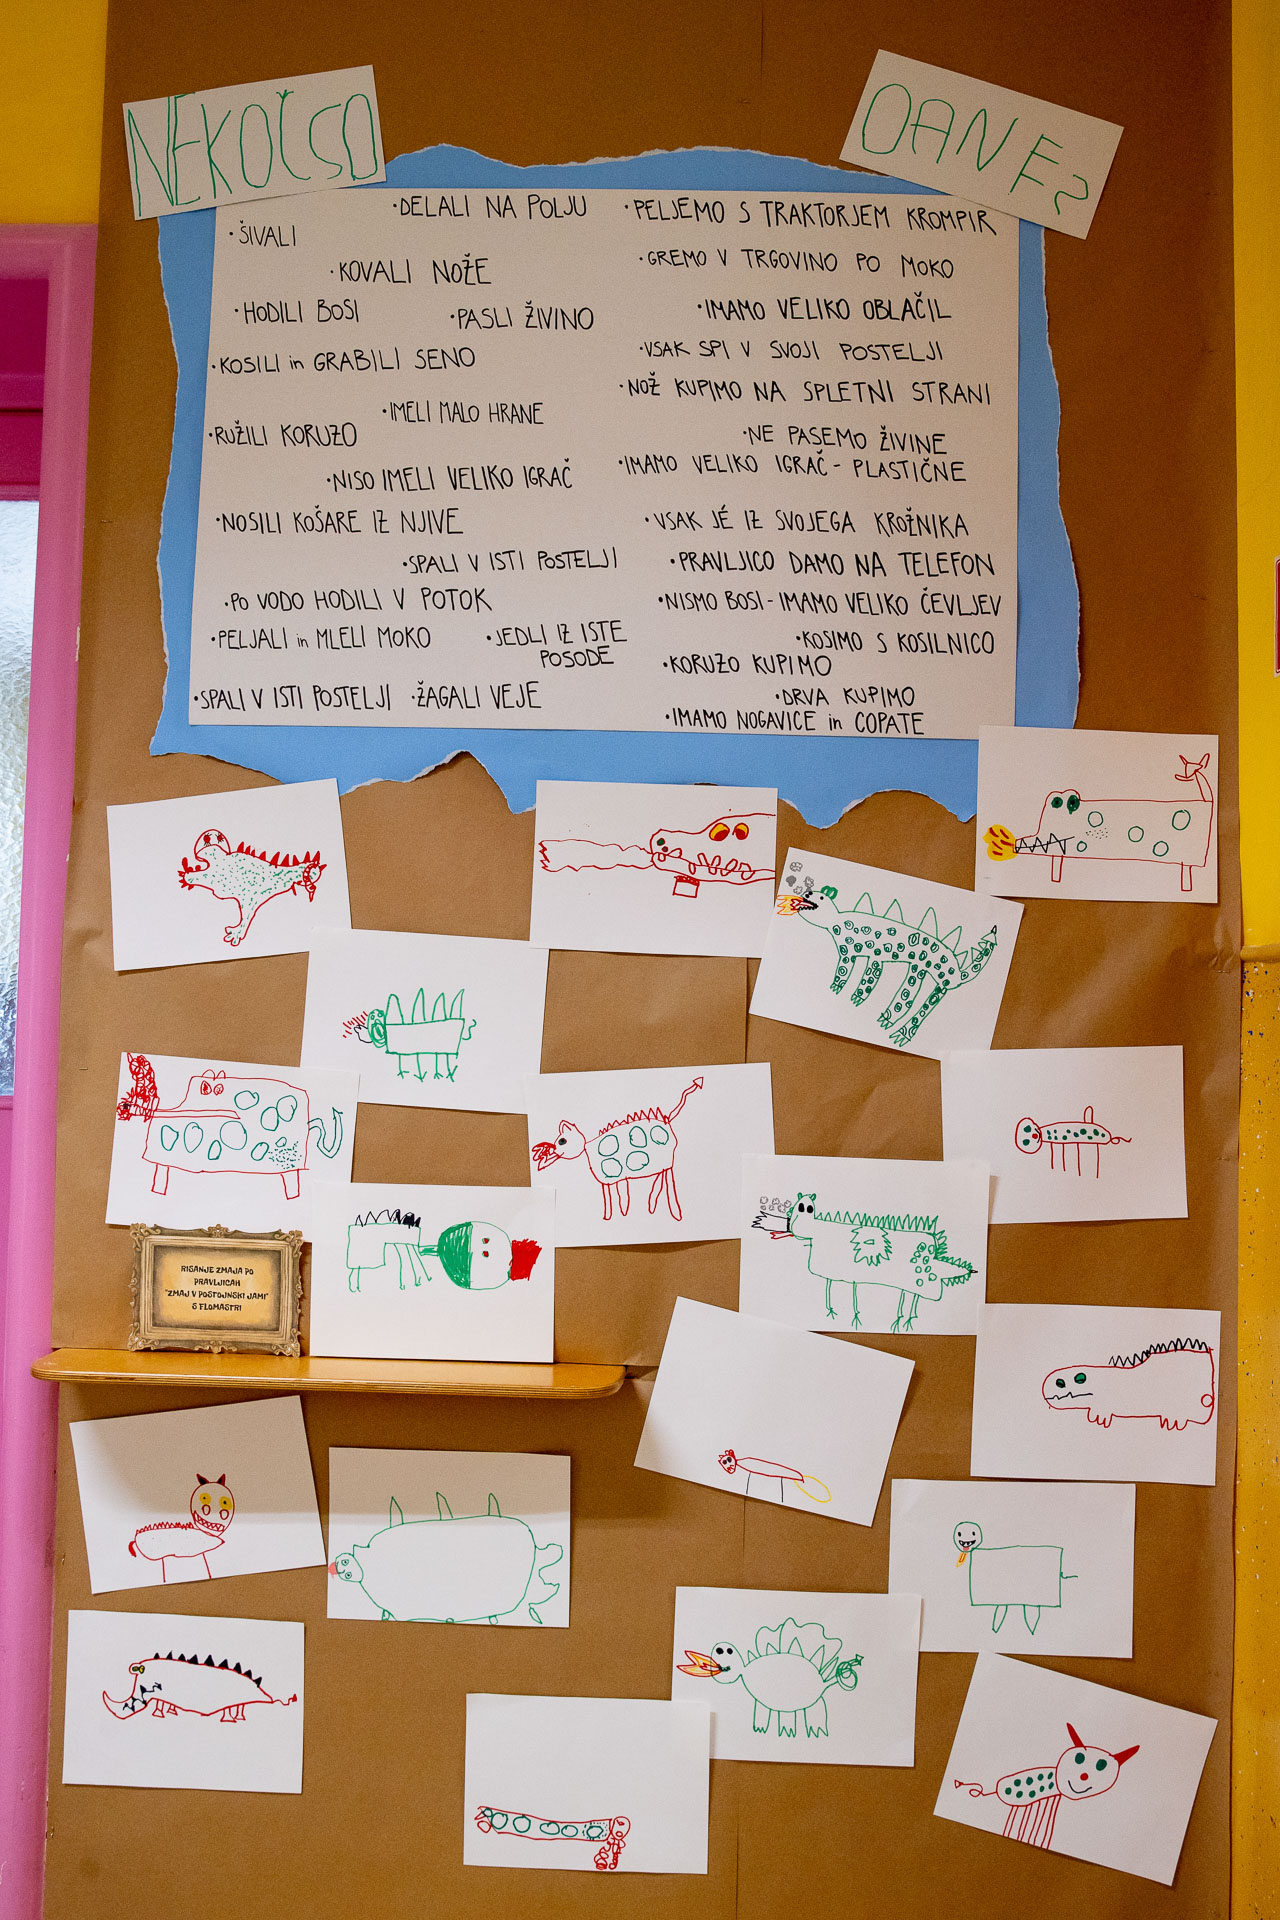 NEKOČ SO
DANES
•DELALI NA POLJU
•ŠIVALI
•KOVALI NOŽE
•HODILI BOSI
•PASLI ŽIVINO
•KOSILI in GRABILI SENO
•IMELI MALO HRANE
•RUŽILI KORUZO
•NISO IMELI VELIKO IGRAČ
•NOSILI KOŠARE IZ NJIVE
•SPALI V ISTI POSTELJI
•PO VODO HODILI V POTOK
•PELJALI in MLELI MOKO
•JEDLI IZ ISTE
POSODE
•SPALI V ISTI POSTELJI
•ŽAGALI VEJE
•PELJEMO S TRAKTORJEM KROMPIR
•GREMO V TRGOVINO PO MOKO
•IMAMO VELIKO OBLAČIL
•VSAK SPI V SVOJI POSTELJI
•NOŽ KUPIMO NA SPLETNI STRANI
•NE PASEMO ŽIVINE
•IMAMO VELIKO IGRAČ - PLASTIČNE
•VSAK JÉ IZ SVOJEGA KROŽNIKA
•PRAVLJICO DAMO NA TELEFON
•NISMO BOSI - IMAMO VELIKO ČEVLJEV
•KOSIMO S KOSILNICO
•KORUZO KUPIMO
•DRVA KUPIMO
•IMAMO NOGAVICE in COPATE
RISANJE ZMAJA PO
PRAVLJICAH
"ZMAJ V POSTOJNSKI JAMI"
S FLOMASTRI